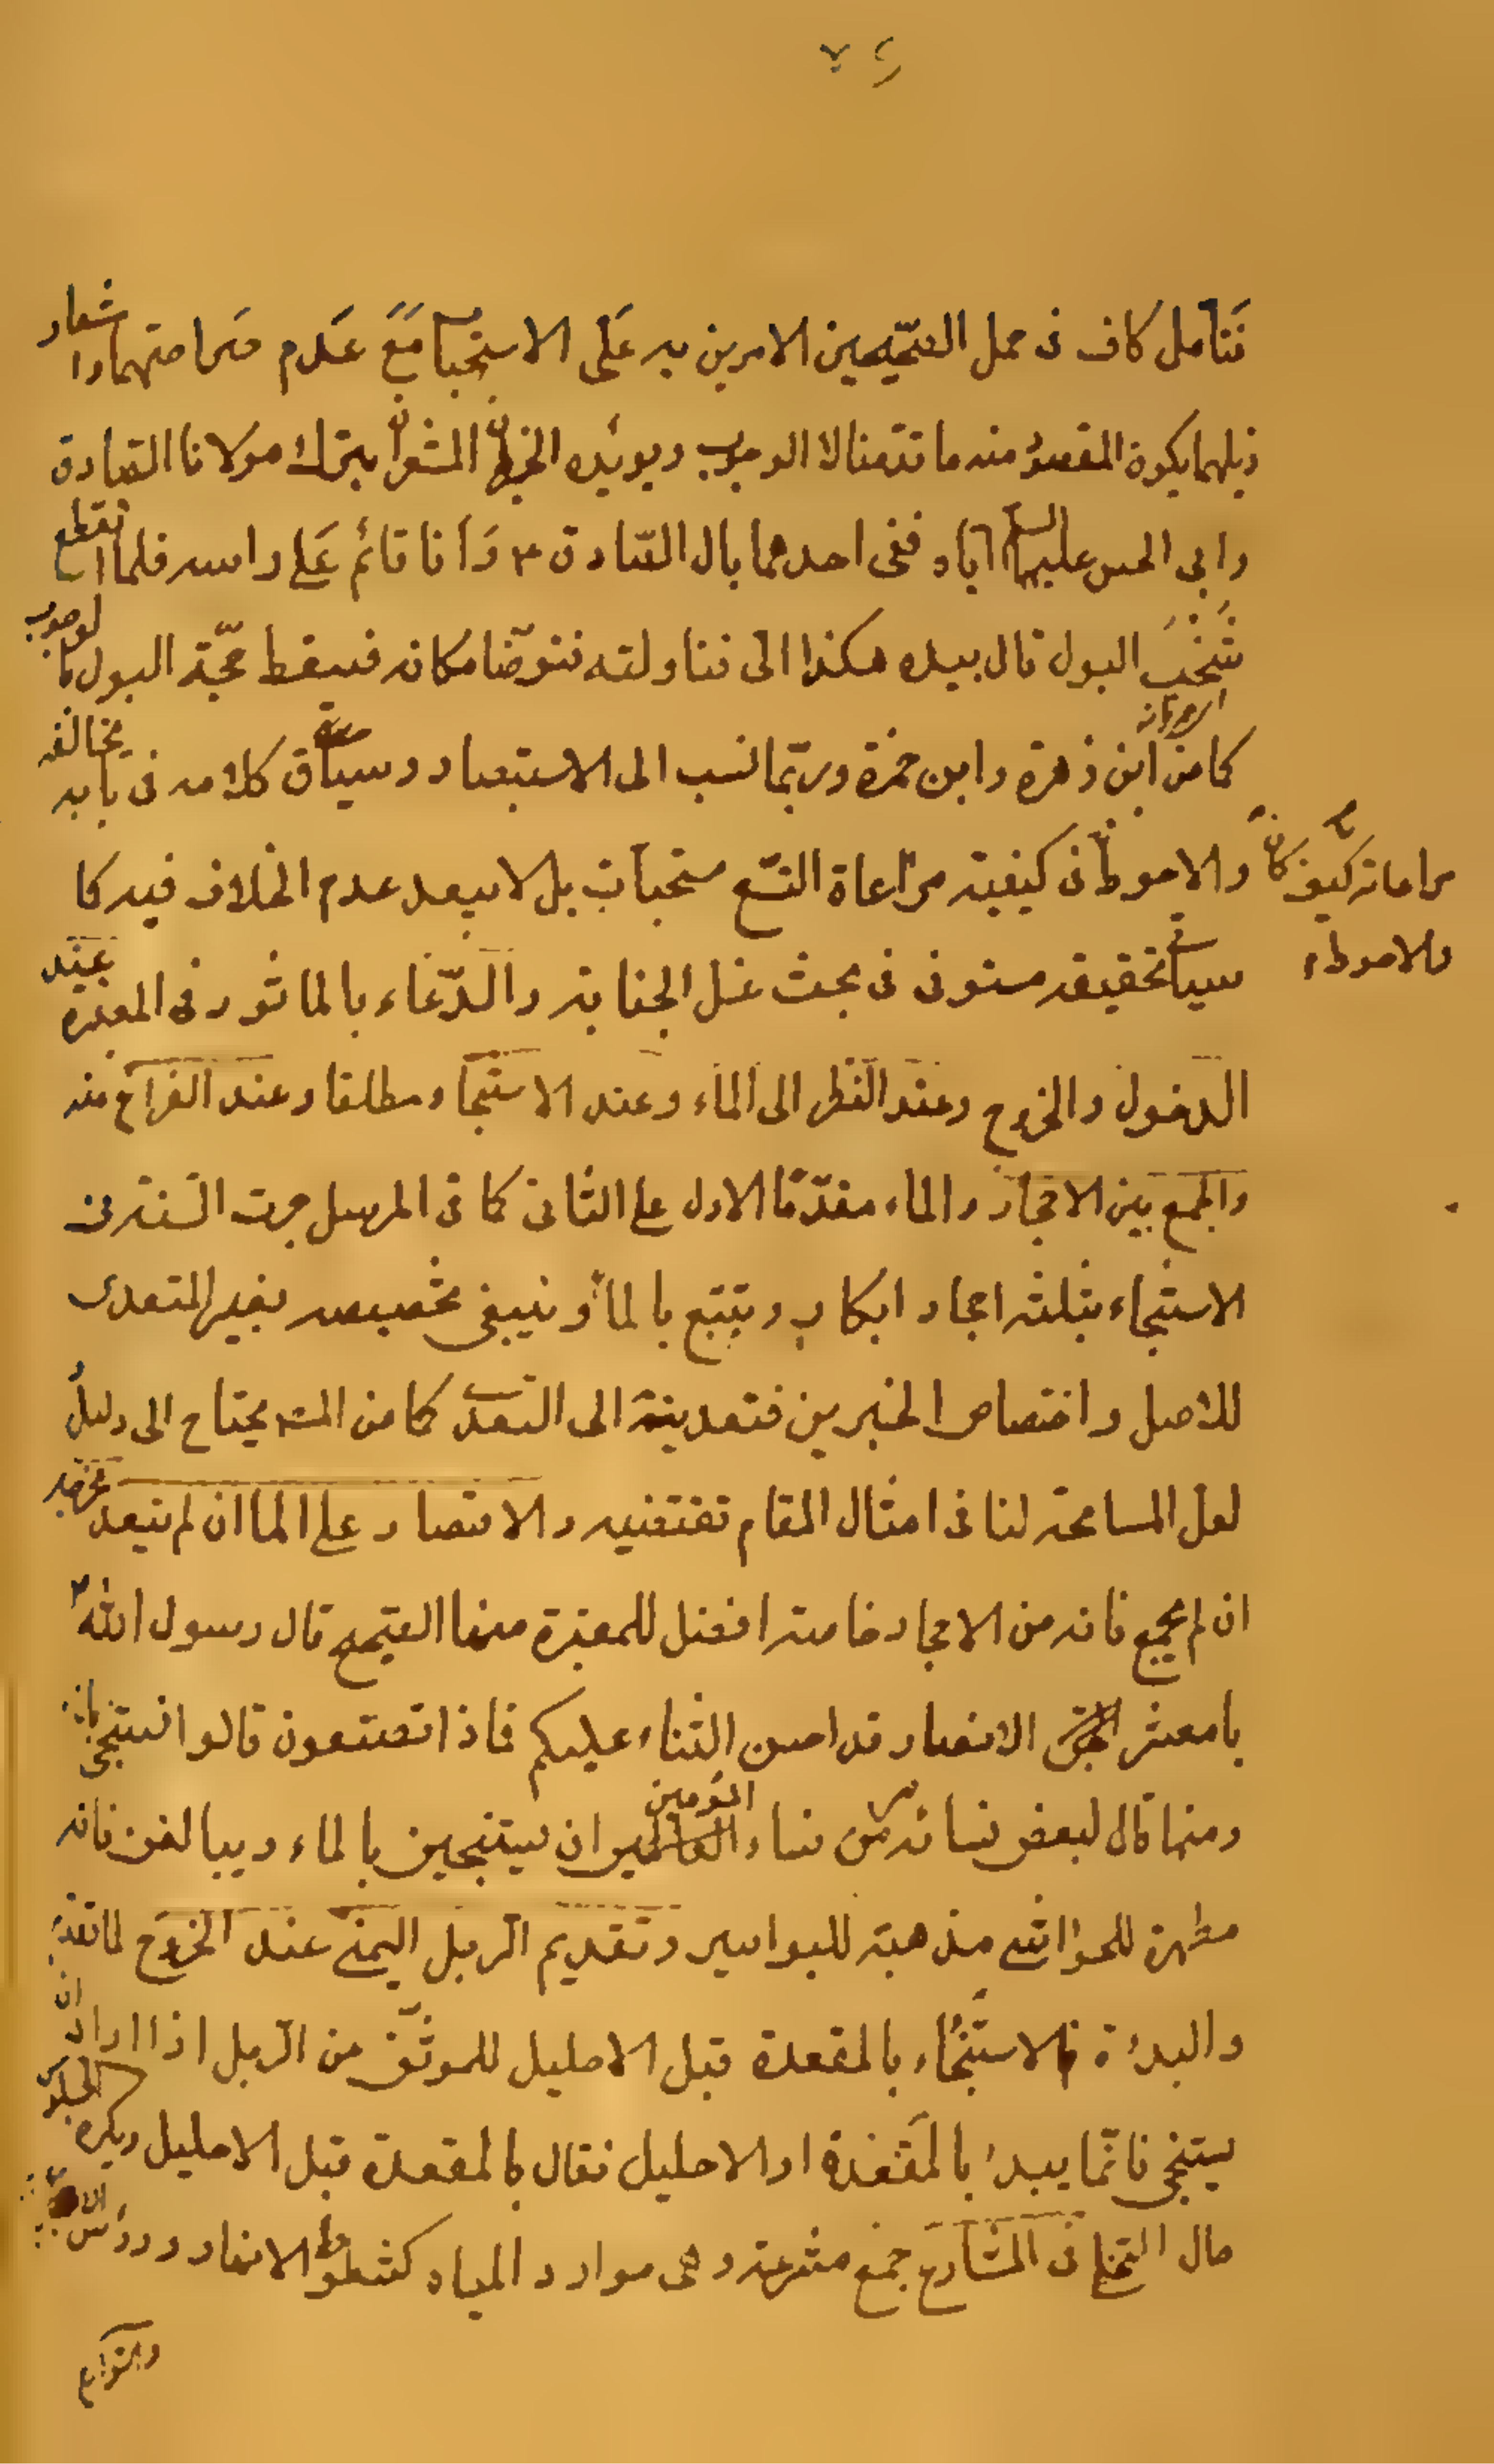 فتأمل كاف في حمل الصحيحين الامرين به على الاستحباب مع عدم صراحتهما واشعار
ذيلهما بكون المقصود منه ما تقدمنا لا الوجوب ويؤيده الخبران المشعران بترك مولانا الصادق
وابي الحسن عليهما السلام اياه ففي احدهما بال الصادق ع وانا قائم على راسه فلما انقطع
شخب البول قال بيده هكذا الى فناولته فتوضا مكانه فيسقط حجة البول بالوجوب
كما من ابن زهرة وابن حمزة وربما نسب الى الاستبصار وسياق كلامه في بابه يخالفه
والاحوط مراعاته كيف كان
والاحوط في كيفيته مراعاة التسع مستحبات بل لا يبعد عدم الخلاف فيه كما
سياتي تحقيقه مستوفى في بحث غسل الجنابة والدعاء بالماثور في المعتبرة عند
الدخول والخروج وعند النظر الى الماء وعند الاستنجاء مطلقا وعند الفراغ منه
والجمع بين الاحجار والماء مقدما الاول على الثاني كما في المرسل جرت السنة في
الاستنجاء بثلثة احجار ابكار ويتبع بالماء وينبغي تخصيصه بغير المتعدى
للاصل واختصاص الخبر بين فتعديته الى التعدى كما من المته يحتاج الى دليل
لعل المسامحة لنا في امثال المقام تقتضيه والاقتصار على الماء ان لم يتعد مخرجه
ان لم يجمع فانه من الاحجار خاصته افضل للمعتبرة منها الصحيح قال رسول الله ص
يا معشر الانصار قد احسن الثناء عليكم فاذا تصنعون قالوا نستنجى بالماء
ومنها قال لبعض نسائه مرى نساء المؤمنين ان يستنجين بالماء ويبالغن فانه
مطهرة للحواشي مذهبة للبواسير وتقديم الرجل اليمنى عند الخروج لما تقدم
والبدءة في الاستنجاء بالمقعدة قبل الاحليل للموثق عن الرجل اذا اراد ان
يستنجى فانما يبدء بالمقعدة او الاحليل فقال بالمقعدة قبل الاحليل ويكره الجلوس
حال التخلي في المشارع جمع مشرعة وهى موارد المياه كشطوط الانهار ورؤس الابار